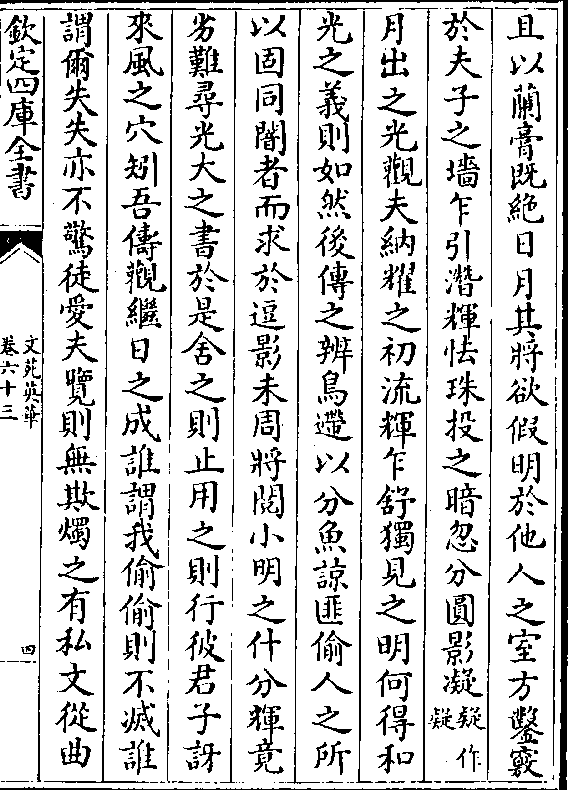 且以蘭膏既絶日月其將欲假明於他人之室方鑿竅
於夫子之墻乍引潛輝怯珠投之暗忽分圓影凝疑作凝
月出之光觀夫納耀之初流輝乍舒獨見之明何得和
光之義則如然後傳之辨鳥遷以分魚諒匪偷人之所
以固同闇者而求於逗影未周將閲小明之什分輝竟
劣難尋光大之書於是舍之則止用之則行彼君子訝
來風之穴矧吾儔觀繼日之成誰謂我偷偷則不滅誰
謂爾失失亦不驚徒愛夫覽則無欺燭之有私文從曲
欽定四庫全書
文苑英華
卷六十三
四